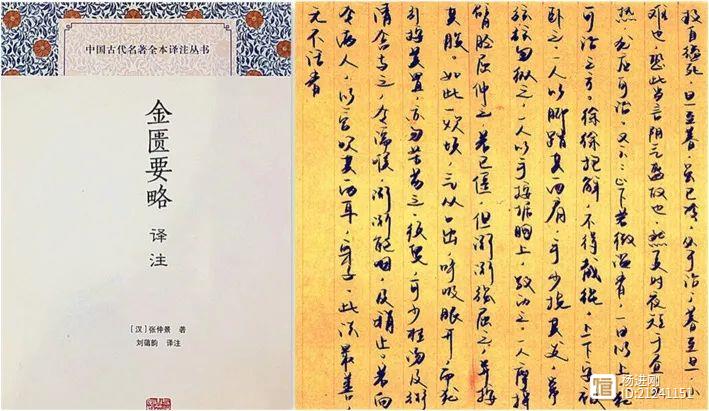 中国古代名著全本译注丛书
金匮要略
译注
[汉]张仲景 著
刘蔼韵 译注
救自缢死,旦至暮,虽已冷,必可治;暮至旦,小
难也,恐此当言阴气盛故也。然夏时夜短于昼,
热,尤应可治。又云:心下若微温者,一日以上,犹
可治之方。徐徐抱解,不得截绳,上下安被
卧之,一人以脚踏其两肩,手少挽其发,常
弦弦勿纵之,一人以手按据胸上,数动之。一人摩捋
臂胫屈伸之。若已僵,但渐渐强屈之,并按
其腹。如此一炊顷,气从口出,呼吸眼开,而犹
引按莫置,亦勿苦劳之,须臾,可少桂汤及粥
清含与之,令濡喉,渐渐能咽,及稍止。若向
令两人,以管吹其两耳,此法最善,
无不活者
汤进刚
ID:21241151